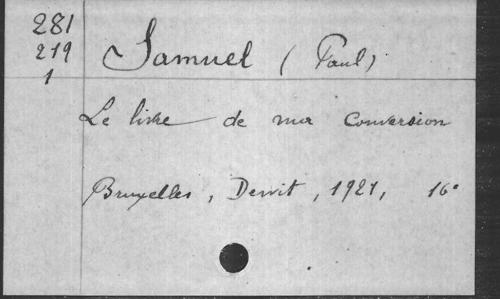 281
219
1
Samuel (Paul)
Le livre de ma conversion
Bruxelles, Dewit, 1921, 16°